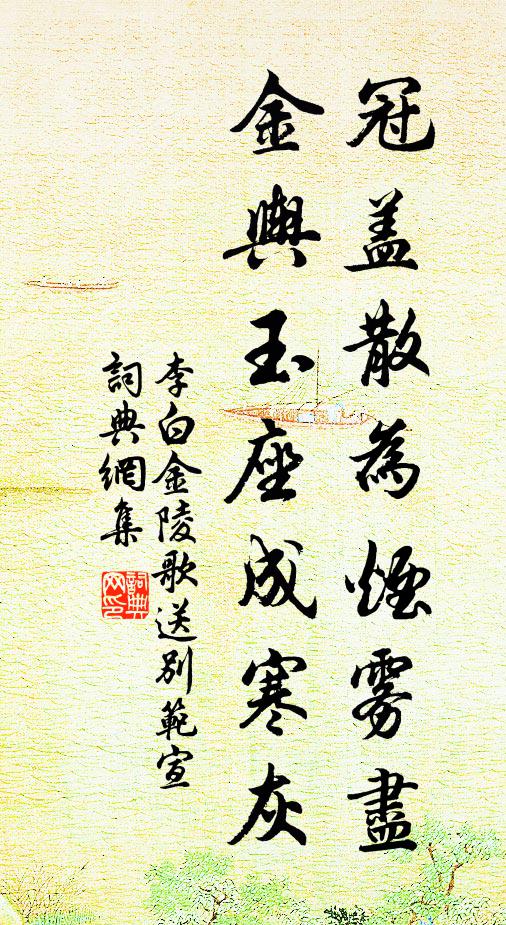 冠盖散為煙雾盡
金輿玉座成寒灰
李白金陵歌送别範宣
詞典網集
詞典网印